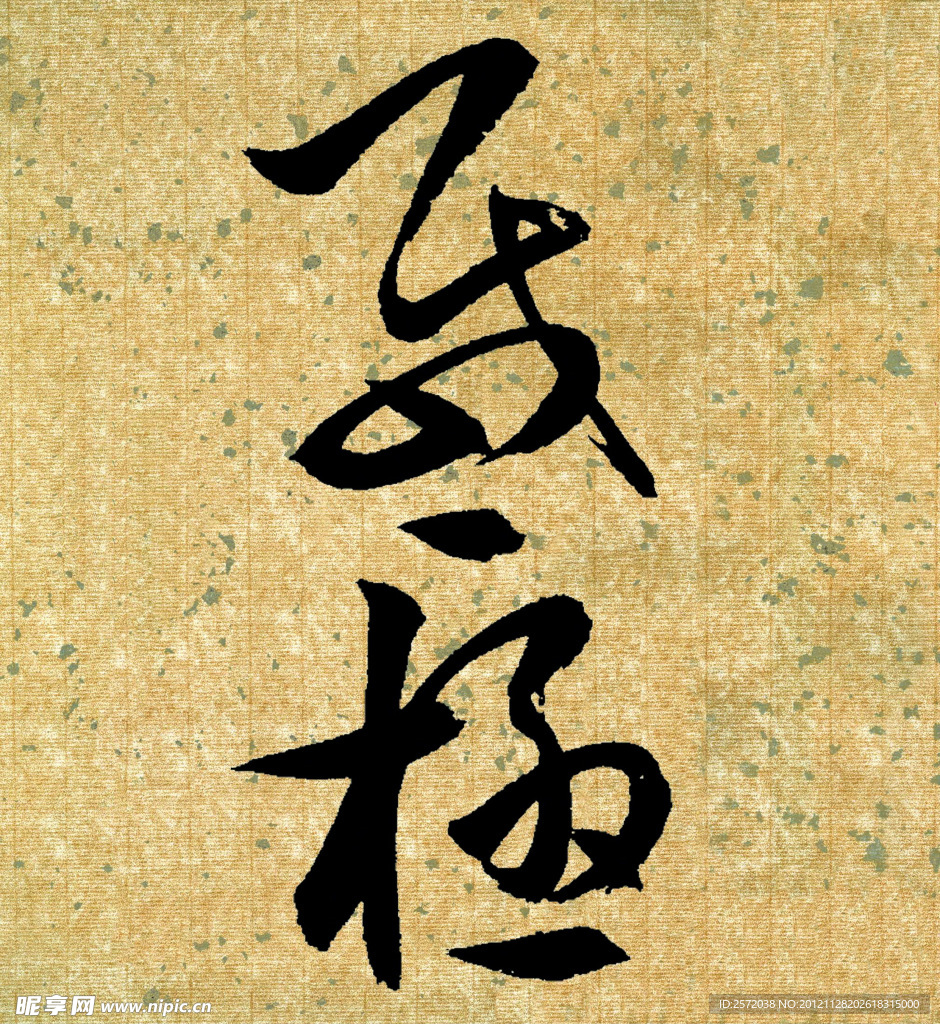 極
昵享网 www.nipic.cn
ID:2572038 NO:20121128202618315000